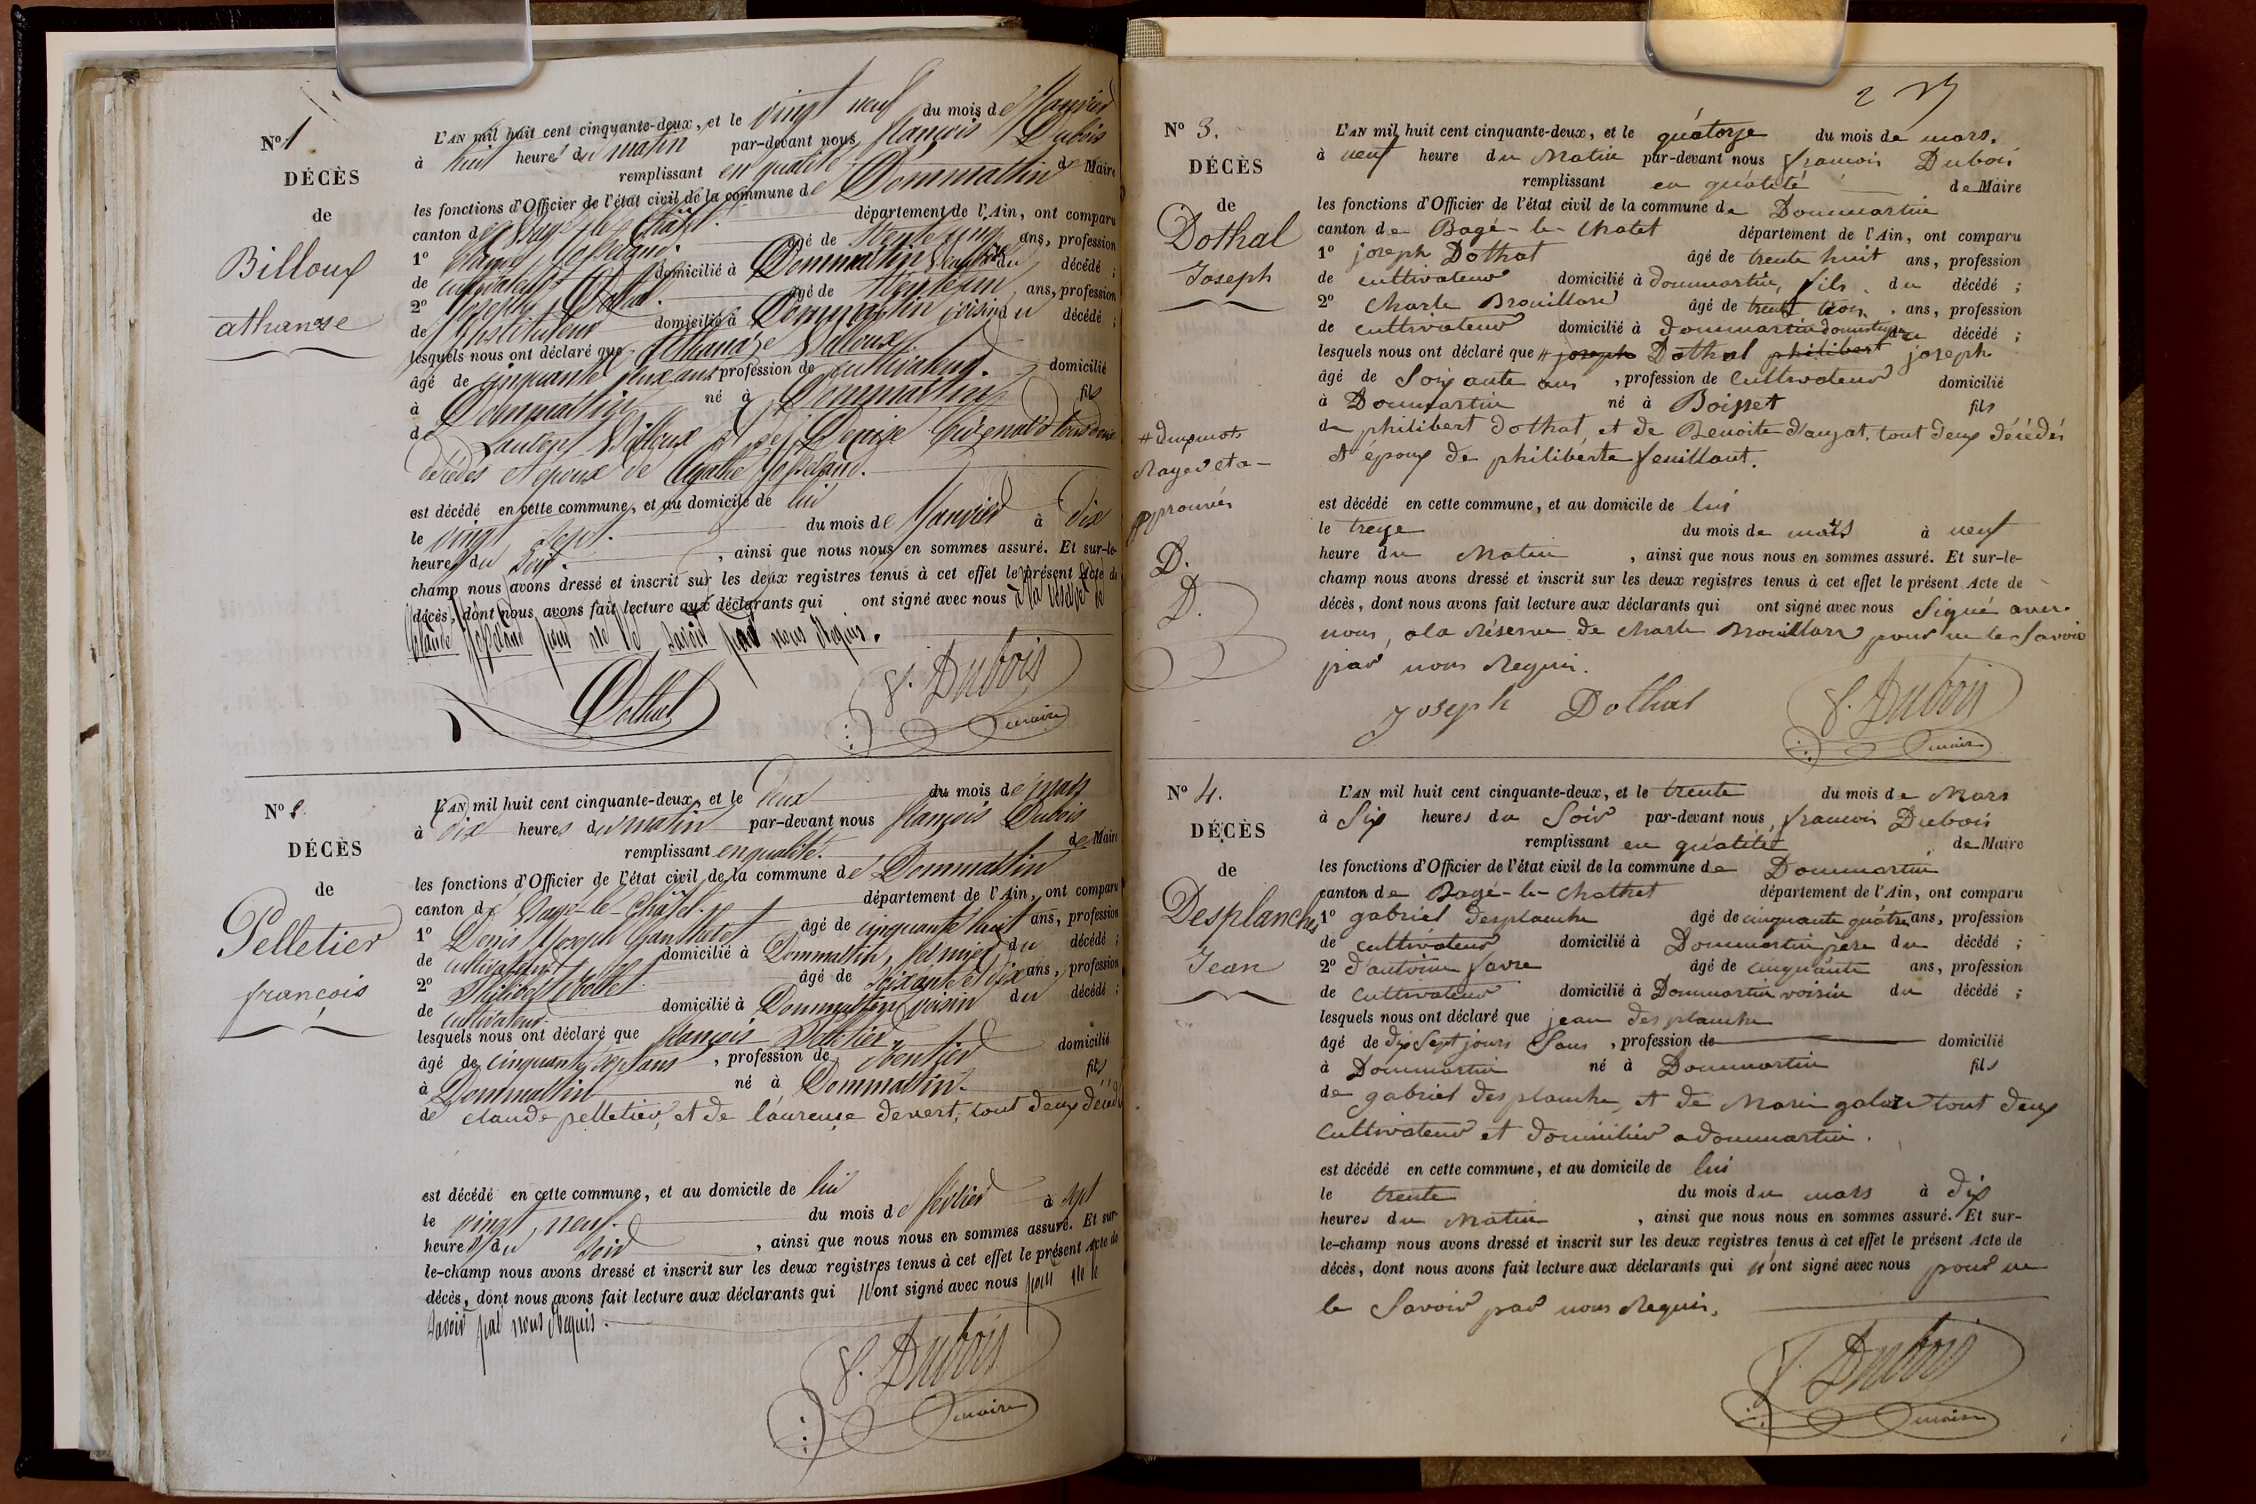 N° 1
DÉCÈS
de
Billoux
athanase
L'AN mil huit cent cinquante-deux, et le vingt neuf du mois de Janvier
à huit heures du matin par-devant nous françois Dubois
remplissant en qualité de Maire
les fonctions d'Officier de l'état civil de la commune de Dommartin
canton de Bagé-le-Châtel département de l'Ain, ont comparu
1° Claude âgé de trente cinq ans, profession
de cultivateur domicilié à Dommartin du décédé ;
2° Joseph Dothal âgé de ans, profession
de Instituteur domicilié à Dommartin voisin du décédé ;
lesquels nous ont déclaré que Athanaze Billoux
âgé de cinquante deux ans profession de cultivateur domicilié
à Dommartin né à Dommartin fils
de Laurent Billoux et de Denise tous deux
décédés et époux de Agathe
est décédé en cette commune, et au domicile de lui
le vingt sept du mois de Janvier à dix
heures du soir , ainsi que nous nous en sommes assuré. Et sur-le-
champ nous avons dressé et inscrit sur les deux registres tenus à cet effet le présent Acte de
décès, dont nous avons fait lecture aux déclarants qui ont signé avec nous à la réserve de
Claude pour ne le savoir par nous Requis.
Dothal F. Dubois
maire
N° 2
DÉCÈS
de
Pelletier
françois
L'AN mil huit cent cinquante-deux, et le deux du mois de mars
à dix heures du matin par-devant nous françois Dubois
remplissant en qualité de Maire
les fonctions d'Officier de l'état civil de la commune de Dommartin
canton de Bagé-le-Châtel département de l'Ain, ont comparu
1° Denis Joseph âgé de cinquante huit ans, profession
de cultivateur domicilié à Dommartin, fermier du décédé ;
2° Philibert âgé de soixante et dix ans, profession
de cultivateur domicilié à Dommartin voisin du décédé ;
lesquels nous ont déclaré que françois Pelletier
âgé de cinquante sept ans , profession de Rentier domicilié
à Dommartin né à Dommartin fils
de claude pelletier, et de laureuse devert, tout deux décédés
est décédé en cette commune, et au domicile de lui
le vingt neuf du mois de février à sept
heures du soir , ainsi que nous nous en sommes assuré. Et sur-
le-champ nous avons dressé et inscrit sur les deux registres tenus à cet effet le présent Acte de
décès, dont nous avons fait lecture aux déclarants qui n'ont signé avec nous pour ne le
savoir par nous Requis.
F. Dubois
maire
2
N° 3.
DÉCÈS
de
Dothal
Joseph
L'AN mil huit cent cinquante-deux, et le quatorze du mois de mars.
à neuf heure du Matin par-devant nous francois Dubois
remplissant en quálité de Maire
les fonctions d'Officier de l'état civil de la commune de Dommartin
canton de Bagé-le-Chatel département de l'Ain, ont comparu
1° joseph Dothal âgé de trente huit ans, profession
de cultivateur domicilié à dommartin, fils du décédé ;
2° Charle Brouillard âgé de trente trois ans, profession
de cultivateur domicilié à dommartin domestique du décédé ;
lesquels nous ont déclaré que # joseph Dothal philibert joseph
âgé de Soixante ans , profession de Cultivateur domicilié
à Dommartin né à Boisset fils
de philibert dothal, et de Benoite dauzat, tout deux décédés
et époux de philiberte feuillant.
# deux mots
Rayer et a-
pprouvés
D.
D.
est décédé en cette commune, et au domicile de lui
le treize du mois de mars à neuf
heure du Matin , ainsi que nous nous en sommes assuré. Et sur-le-
champ nous avons dressé et inscrit sur les deux registres tenus à cet effet le présent Acte de
décès, dont nous avons fait lecture aux déclarants qui ont signé avec nous Signé avec
nous, a la Réserve de charle Brouillard pour ne le Savoir
par nous Requis.
joseph Dothal F. Dubois
maire
N° 4.
DÉCÈS
de
Desplanches
Jean
L'AN mil huit cent cinquante-deux, et le trente du mois de Mars
à Six heures du Soir par-devant nous, francois Dubois
remplissant en quálité de Maire
les fonctions d'Officier de l'état civil de la commune de Dommartin
canton de Bagé-le-Chathel département de l'Ain, ont comparu
1° gabriel desplanche âgé de cinquante quátre ans, profession
de cultivateur domicilié à Dommartin père du décédé ;
2° d'antoine favre âgé de cinquante ans, profession
de cultivateur domicilié à Dommartin voisin du décédé ;
lesquels nous ont déclaré que jean desplanche
âgé de dix Sept jours Sans , profession de domicilié
à Dommartin né à Dommartin fils
de gabriel desplanche, et de Marie tout deux
Cultivateur et domicilier a dommartin.
est décédé en cette commune, et au domicile de lui
le trente du mois du mars à dix
heures du Matin , ainsi que nous nous en sommes assuré. Et sur-
le-champ nous avons dressé et inscrit sur les deux registres tenus à cet effet le présent Acte de
décès, dont nous avons fait lecture aux déclarants qui n'ont signé avec nous pour ne
le Savoir par nous Requis.
F. Dubois
maire